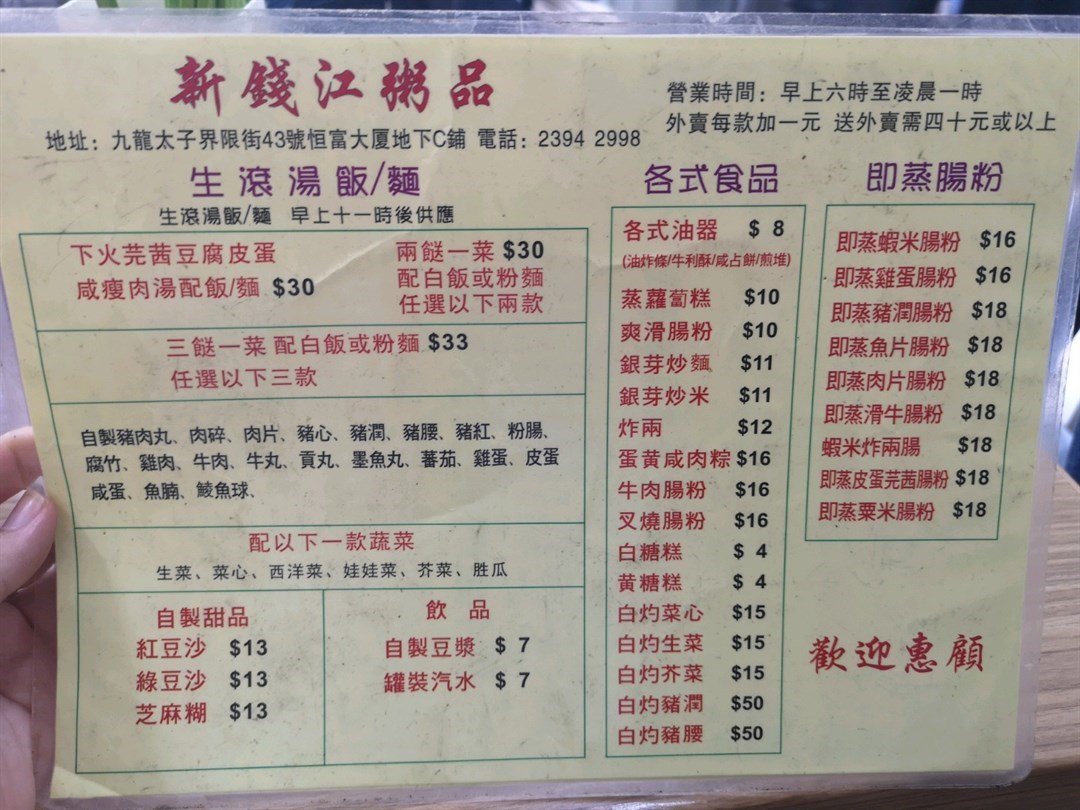 新錢江粥品
營業時間：早上六時至凌晨一時
外賣每款加一元 送外賣需四十元或以上
地址：九龍太子界限街43號恒富大厦地下C鋪 電話：2394 2998
生滾湯飯/麵
生滾湯飯/麵 早上十一時後供應
下火芫茜豆腐皮蛋
咸瘦肉湯配飯/麵 $30
兩餸一菜 $30
配白飯或粉麵
任選以下兩款
三餸一菜 配白飯或粉麵 $33
任選以下三款
自製豬肉丸、肉碎、肉片、豬心、豬潤、豬腰、豬紅、粉腸、
腐竹、雞肉、牛肉、牛丸、貢丸、墨魚丸、蕃茄、雞蛋、皮蛋
咸蛋、魚腩、鯪魚球、
配以下一款蔬菜
生菜、菜心、西洋菜、娃娃菜、芥菜、胜瓜
自製甜品
紅豆沙 $13
綠豆沙 $13
芝麻糊 $13
飲品
自製豆漿 $ 7
罐裝汽水 $ 7
各式食品
各式油器 $ 8
(油炸條/牛利酥/咸占餅/煎堆)
蒸蘿蔔糕 $10
爽滑腸粉 $10
銀芽炒麵 $11
銀芽炒米 $11
炸兩 $12
蛋黃咸肉粽 $16
牛肉腸粉 $16
叉燒腸粉 $16
白糖糕 $ 4
黄糖糕 $ 4
白灼菜心 $15
白灼生菜 $15
白灼芥菜 $15
白灼豬潤 $50
白灼豬腰 $50
即蒸腸粉
即蒸蝦米腸粉 $16
即蒸雞蛋腸粉 $16
即蒸豬潤腸粉 $18
即蒸魚片腸粉 $18
即蒸肉片腸粉 $18
即蒸滑牛腸粉 $18
蝦米炸兩腸 $18
即蒸皮蛋芫茜腸粉 $18
即蒸粟米腸粉 $18
歡迎惠顧